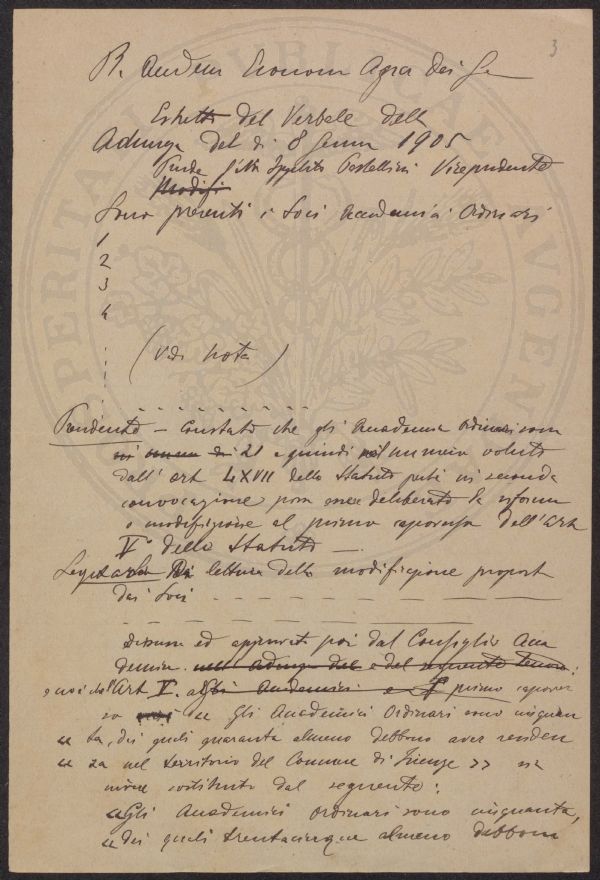 3
R. Economi Agra dei
Estratto del Verbale della
Adunza del dì 8 Genn 1905
Pestellini Vicepresidente
Modifi
Sono presenti i Soci Accademici Ordinari
1
2
3
4
(Vedi Nota)
Presidente – Constato che gli Accademici ordinari sono
21 e quindi nel numero voluto
dall' art LXVII dello Statuto perché in seconda
convocazione possa esser deliberata la riforma
o modifizione al primo capoverso dell'Art
V° dello Statuto —
Segretario Dà lettura della modificazione proposta
dai Soci
discussa ed approvata poi dal Consiglio Acca
demico. nell' adunza del e del seguente tenore:
e cioè che l'Art V. Gli Accademici e primo capover
so << Gli Accademici Ordinari sono cinquan
<< ta, dei quali quaranta almeno debbono aver residen
<< za nel territorio del Comune di Firenze >> sia
sostituito dal seguente:
<< Gli Accademici ordinari sono cinquanta,
<< dei quali trentacinque almeno debbono